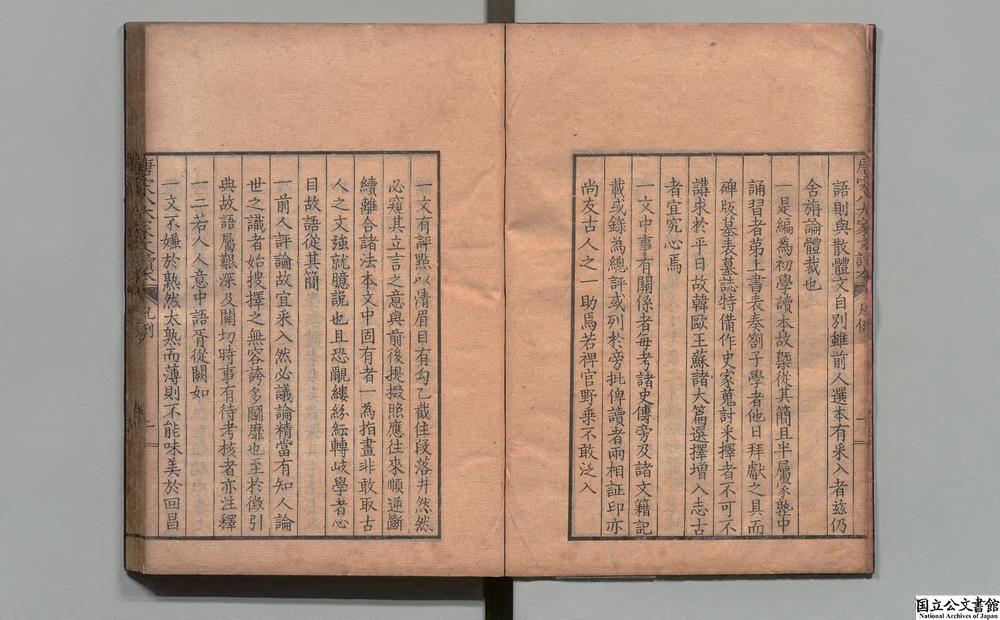 唐宋八大家文讀本 凡例 一
語則與散體文自別雖前人選本有采入者兹仍
舍旃論體裁也
一是編為初學讀本故槩從其簡且半屬家塾中
誦習者第上書表奏劄子學者他日拜獻之具而
碑版墓表墓誌特備作史家蒐討采擇者不可不
講求於平日故韓歐王蘇諸大篇選擇增入志古
者宜究心焉
一文中事有關係者每考諸史傳旁及諸文籍記
載或錄為總評或列於旁批俾讀者兩相証印亦
尚友古人之一助焉若稗官野乘不敢泛入
一文有評點以清眉目有勾乙截住段落井然然
必窺其立言之意與前後提掇照應往來順逆斷
續離合諸法本文中固有者一為指畫非敢取古
人之文強就臆說也且恐覼縷紛紜轉岐學者心
目故語從其簡
一前人評論故宜采入然必議論精當有知人論
世之識者始搜擇之無容誇多鬭靡也至於徵引
典故語屬艱深及關切時事有待考核者亦注釋
一二若人人意中語胥從闕如
一文不嫌於熟然太熟而薄則不能味美於回昌
唐宋八大家文讀本 凡例 二
国立公文書館
National Archives of Japan